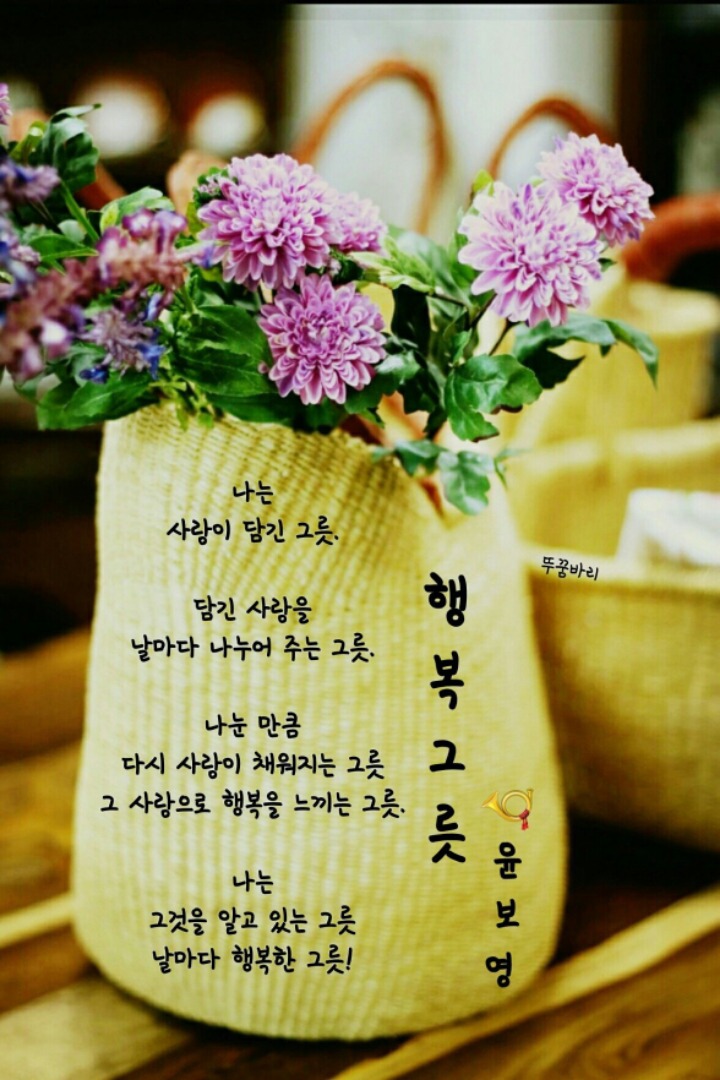 나는
사랑이 담긴 그릇.
담긴 사랑을
날마다 나누어 주는 그릇.
나눈 만큼
다시 사랑이 채워지는 그릇
그 사랑으로 행복을 느끼는 그릇.
나는
그것을 알고 있는 그릇
날마다 행복한 그릇!
행복그릇
윤보영
뚜꿈바리